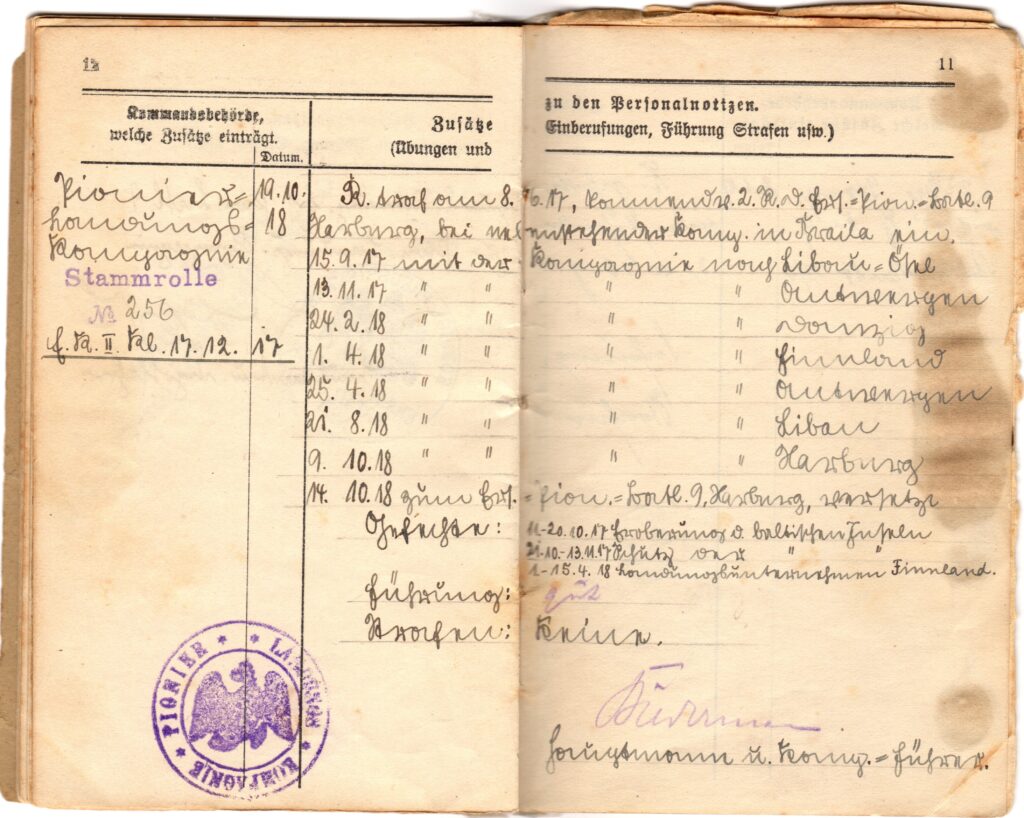 12
Kommandobehörde,
welche Zusätze einträgt.
Datum.
Zusätze
(Übungen und
Pionier-
landungs-
Kompagnie
19.10.
18
Stammrolle
No 256
II 17.12.17
11
zu den Personalnotizen.
Einberufungen, Führung Strafen usw.)
R. traf am 8.6.17, kommend v. 2. R. d. Ers.=Pion.=Batl. 9
Harburg, bei nebenstehender Komp. in Braila ein.
15.9.17 mit der Kompagnie nach Libau=Ösel
13.11.17 " " " " Antwerpen
24.2.18 " " " " Danzig
1.4.18 " " " " Finnland
25.4.18 " " " " Antwerpen
21.8.18 " " " " Libau
9.10.18 " " " " Harburg
14.10.18 zum Ers.=Pion.=Batl. 9, Harburg, versetzt
Gefechte: 11.-20.10.17 Eroberung d. baltischen Inseln
21.10.-13.11.17 Schutz der " "
1.-15.4.18 Landungsunternehmen Finnland.
Führung: gut
Strafen: Keine.
Hauptmann u. Komp.=Führer.
PIONIER * * LANDUNGS * KOMPAGNIE *